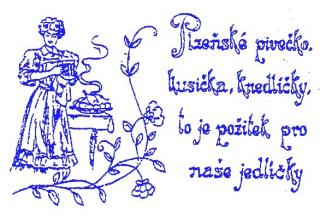 Plzeňské pivečko,
husička, knedlíčky,
to je požitek pro
naše jedlíčky